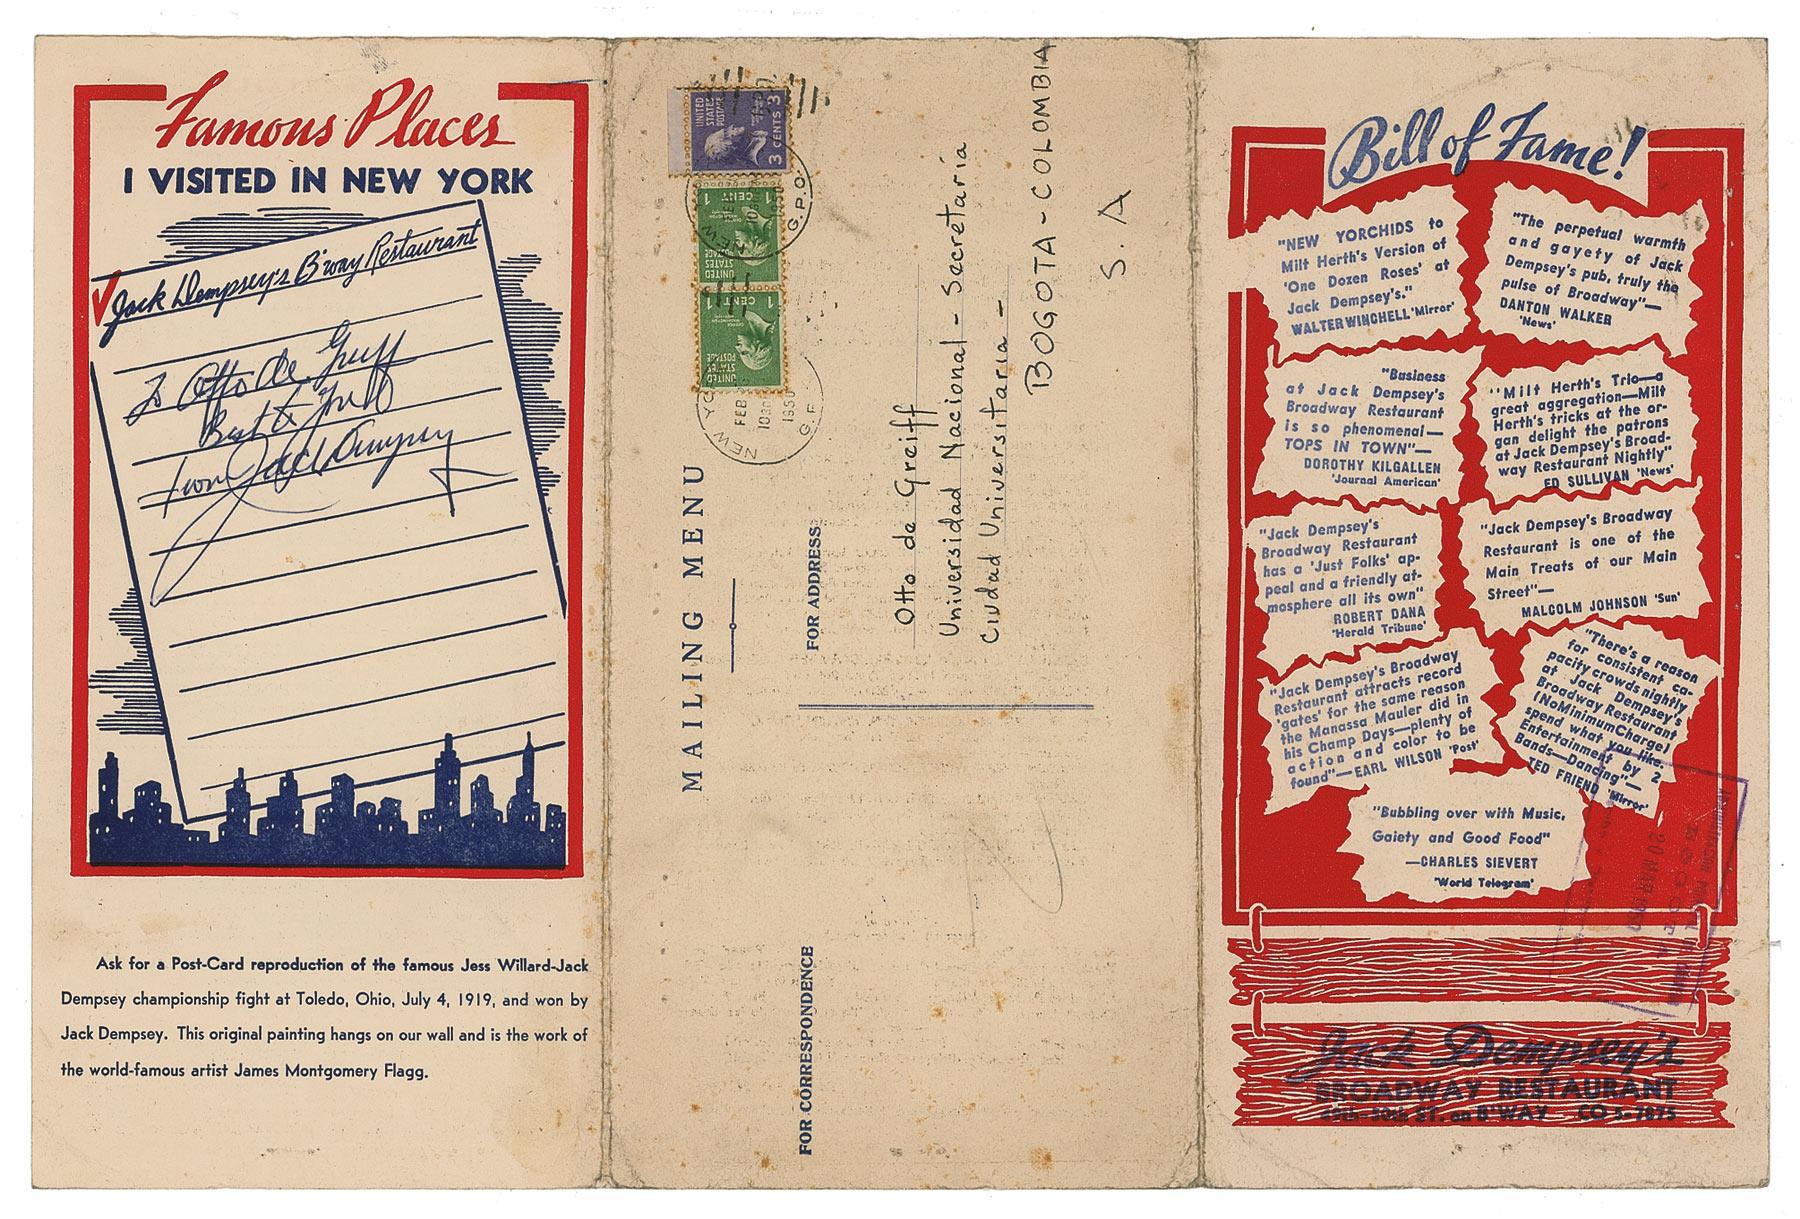 Famous Places
I VISITED IN NEW YORK
Jack Dempsey's B'way Restaurant
To Otto de Greiff
Best of Luck
from Jack Dempsey
Ask for a Post-Card reproduction of the famous Jess Willard-Jack
Dempsey championship fight at Toledo, Ohio, July 4, 1919, and won by
Jack Dempsey. This original painting hangs on our wall and is the work of
the world-famous artist James Montgomery Flagg.
UNITED
STATES
POSTAGE
3 CENTS 3
1 CENT 1
UNITED
STATES
POSTAGE
1 CENT 1
UNITED
STATES
POSTAGE
NEW
1950
G.P.O.
NEW YO
FEB
1030
1950
G.P.
MAILING MENU
FOR ADDRESS
Otto de Greiff
Universidad Nacional - Secretaría
Ciudad Universitaria -
BOGOTA - COLOMBIA
S. A
FOR CORRESPONDENCE
Bill of Fame!
"NEW YORCHIDS to
Milt Herth's Version of
'One Dozen Roses' at
Jack Dempsey's."
WALTER WINCHELL 'Mirror'
"The perpetual warmth
and gayety of Jack
Dempsey's pub, truly the
pulse of Broadway"—
DANTON WALKER
'News'
"Business
at Jack Dempsey's
Broadway Restaurant
is so phenomenal—
TOPS IN TOWN"—
DOROTHY KILGALLEN
'Journal American'
"Milt Herth's Trio—a
great aggregation—Milt
Herth's tricks at the or-
gan delight the patrons
at Jack Dempsey's Broad-
way Restaurant Nightly"
ED SULLIVAN 'News'
"Jack Dempsey's
Broadway Restaurant
has a 'Just Folks' ap-
peal and a friendly at-
mosphere all its own"
ROBERT DANA
'Herald Tribune'
"Jack Dempsey's Broadway
Restaurant is one of the
Main Treats of our Main
Street"—
MALCOLM JOHNSON 'Sun'
"Jack Dempsey's Broadway
Restaurant attracts record
'gates' for the same reason
the Manassa Mauler did in
his Champ Days—plenty of
action and color to be
found"—EARL WILSON 'Post'
"There's a reason
for consistent ca-
pacity crowds nightly
at Jack Dempsey's
Broadway Restaurant
(No Minimum Charge)
spend what you like.
Entertainment by 2
Bands—Dancing"—
TED FRIEND 'Mirror'
"Bubbling over with Music,
Gaiety and Good Food"
—CHARLES SIEVERT
'World Telegram'
BOGOTA
20 MAR
Jack Dempsey's
BROADWAY RESTAURANT
49th-50th ST. on B'WAY CO 5-7875